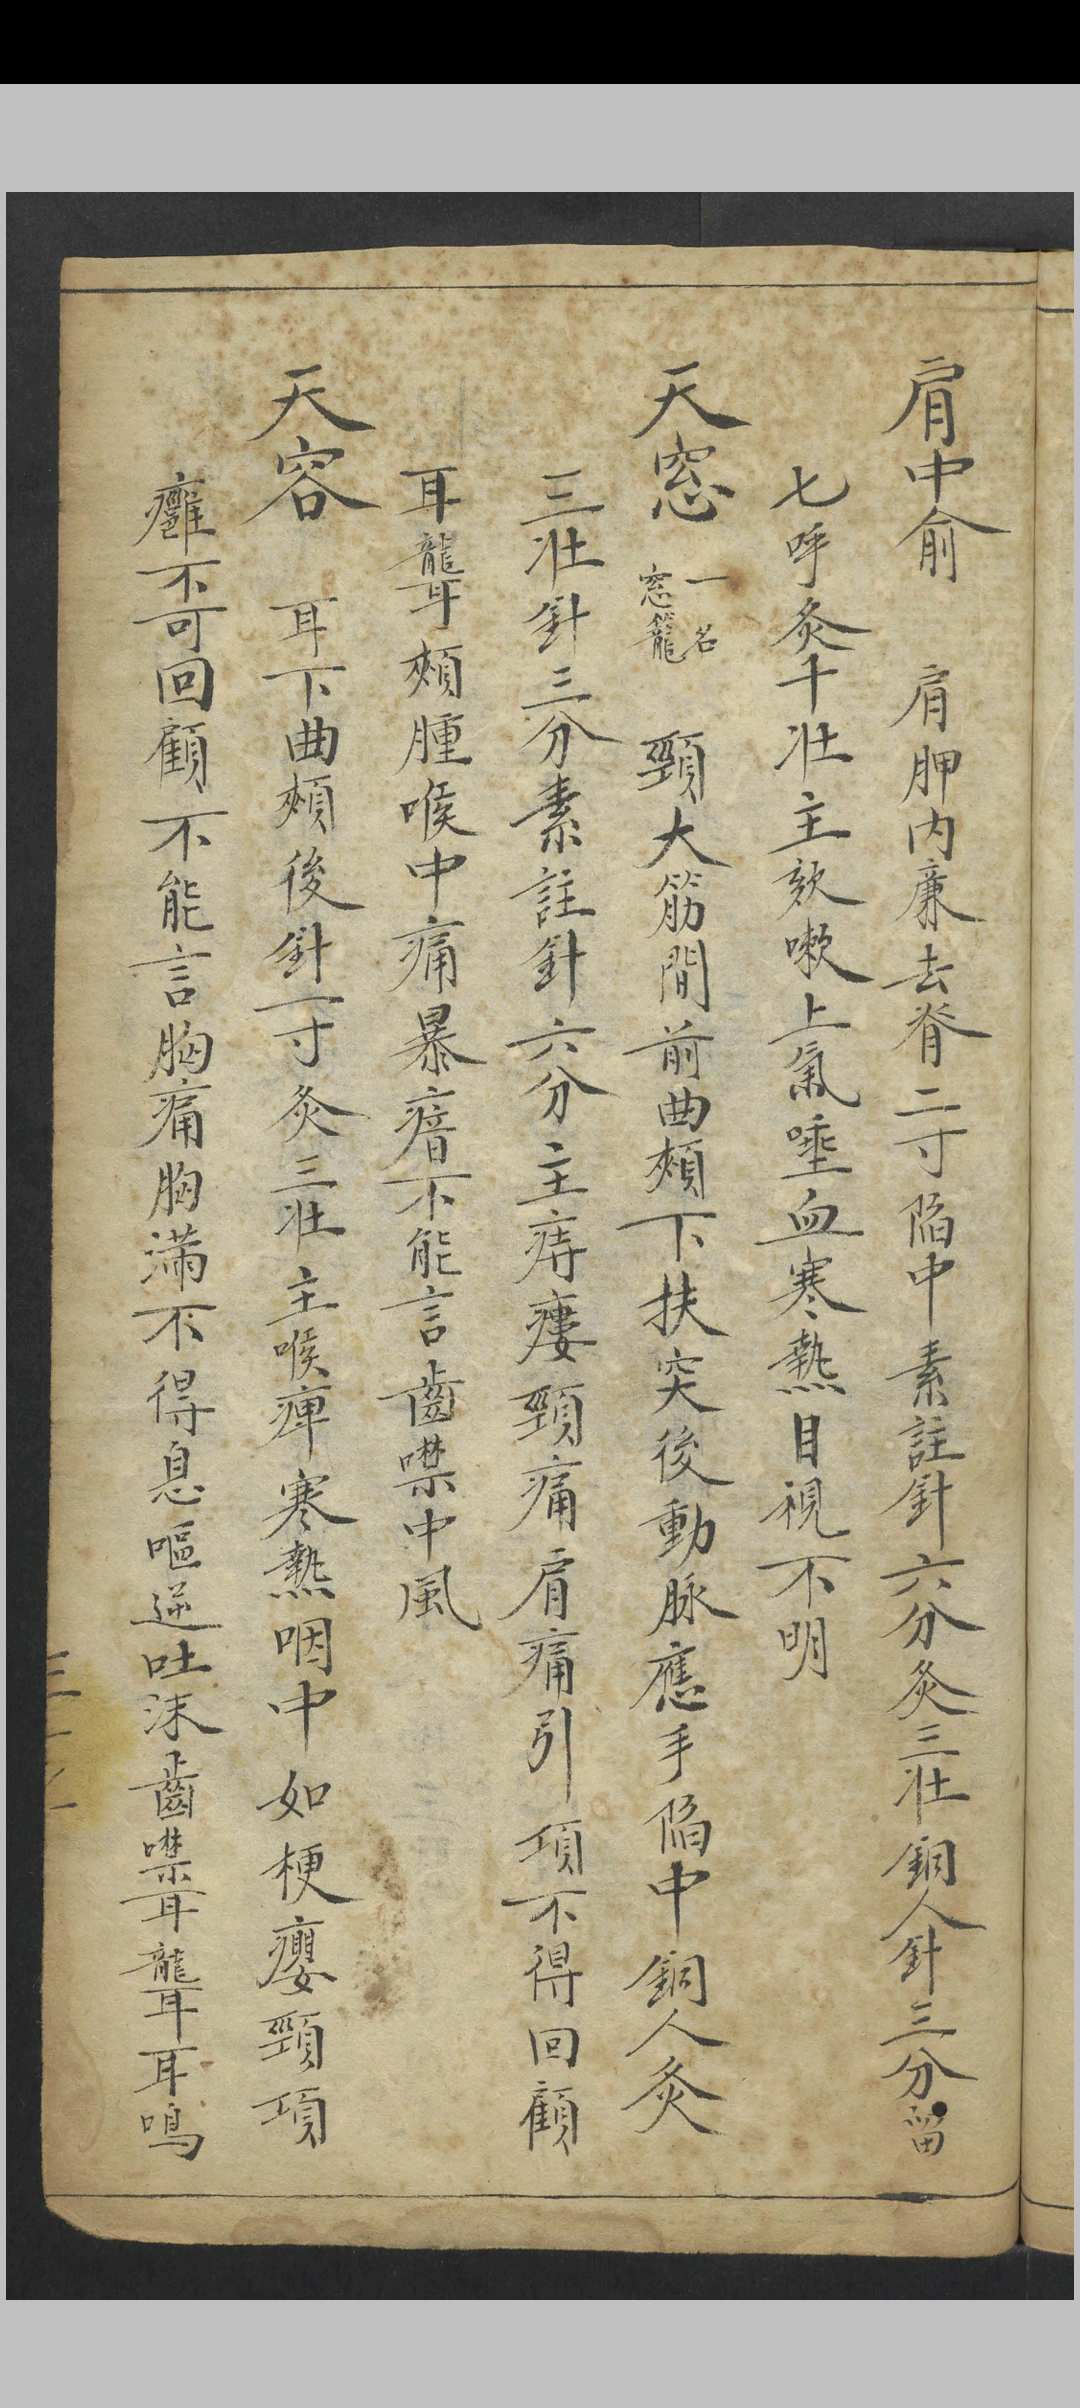 肩中俞 肩胛内廉去脊二寸陷中素註針六分灸三壯銅人針三分留
七呼灸十壯主欬嗽上氣唾血寒熱目視不明
天窓 一名窓籠 頸大筋間前曲頰下扶突後動脉應手陷中銅人灸
三壯針三分素註針六分主痔瘻頸痛肩痛引項不得回顧
耳聾頰腫喉中痛暴瘖不能言齒噤中風
天容 耳下曲頰後針一寸灸三壯主喉痺寒熱咽中如梗癭頸項
癰不可回顧不能言胸痛胸滿不得息嘔逆吐沫齒噤耳聾耳鳴